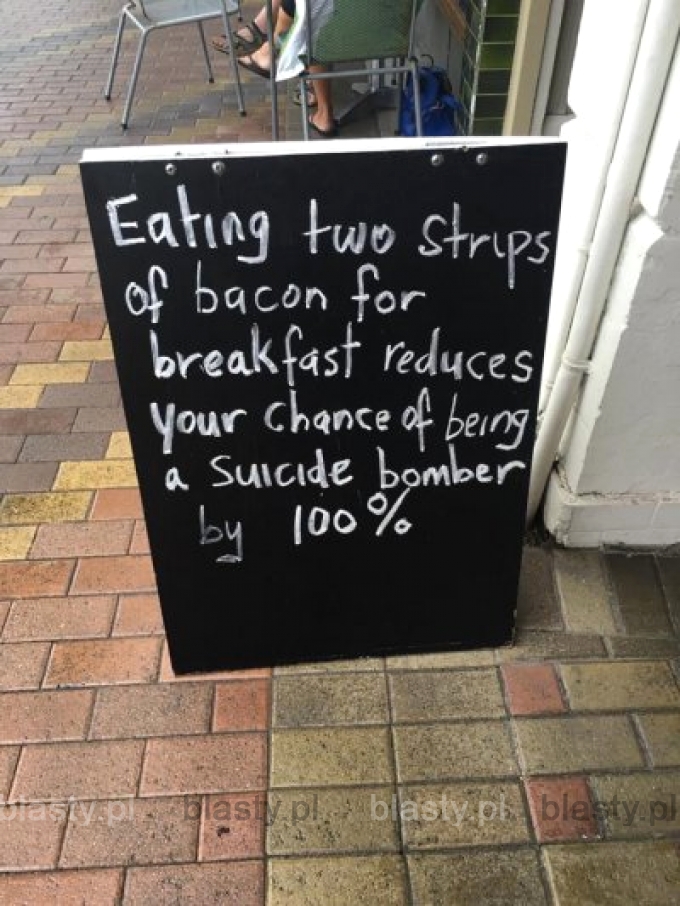 Eating two strips
of bacon for
breakfast reduces
your chance of being
a suicide bomber
by 100%
blasty.pl blasty.pl blasty.pl blasty.pl